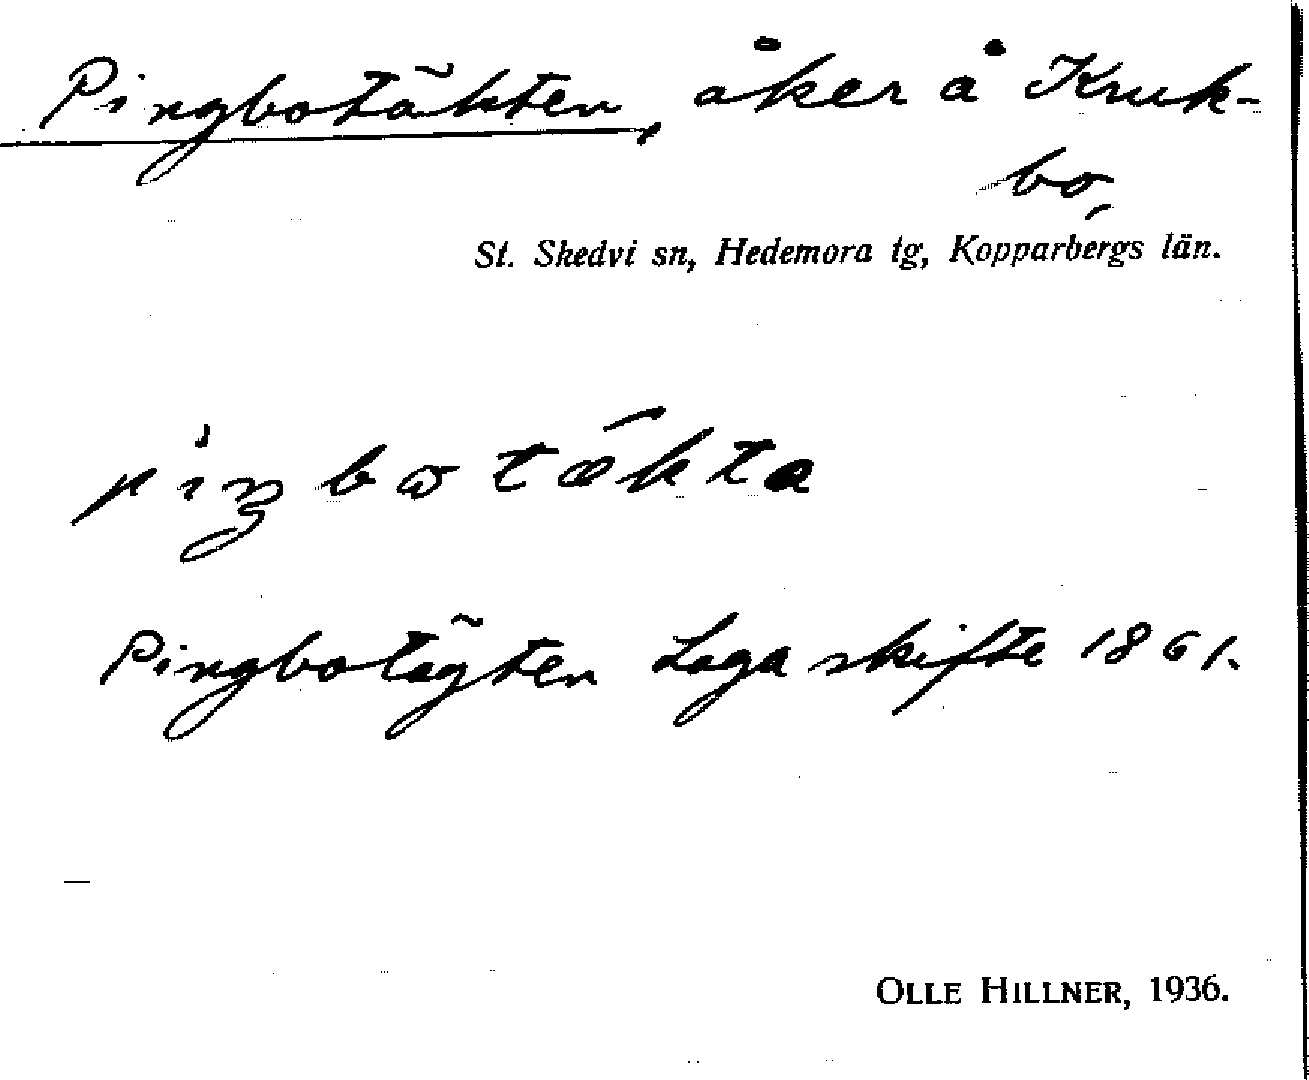 Pingbotäkten, åker å Kruk-
bo,
St. Skedvi sn, Hedemora tg, Kopparbergs län.
piŋbωtǽkta
Pingbotägten Laga skifte 1861.
OLLE HILLNER, 1936.